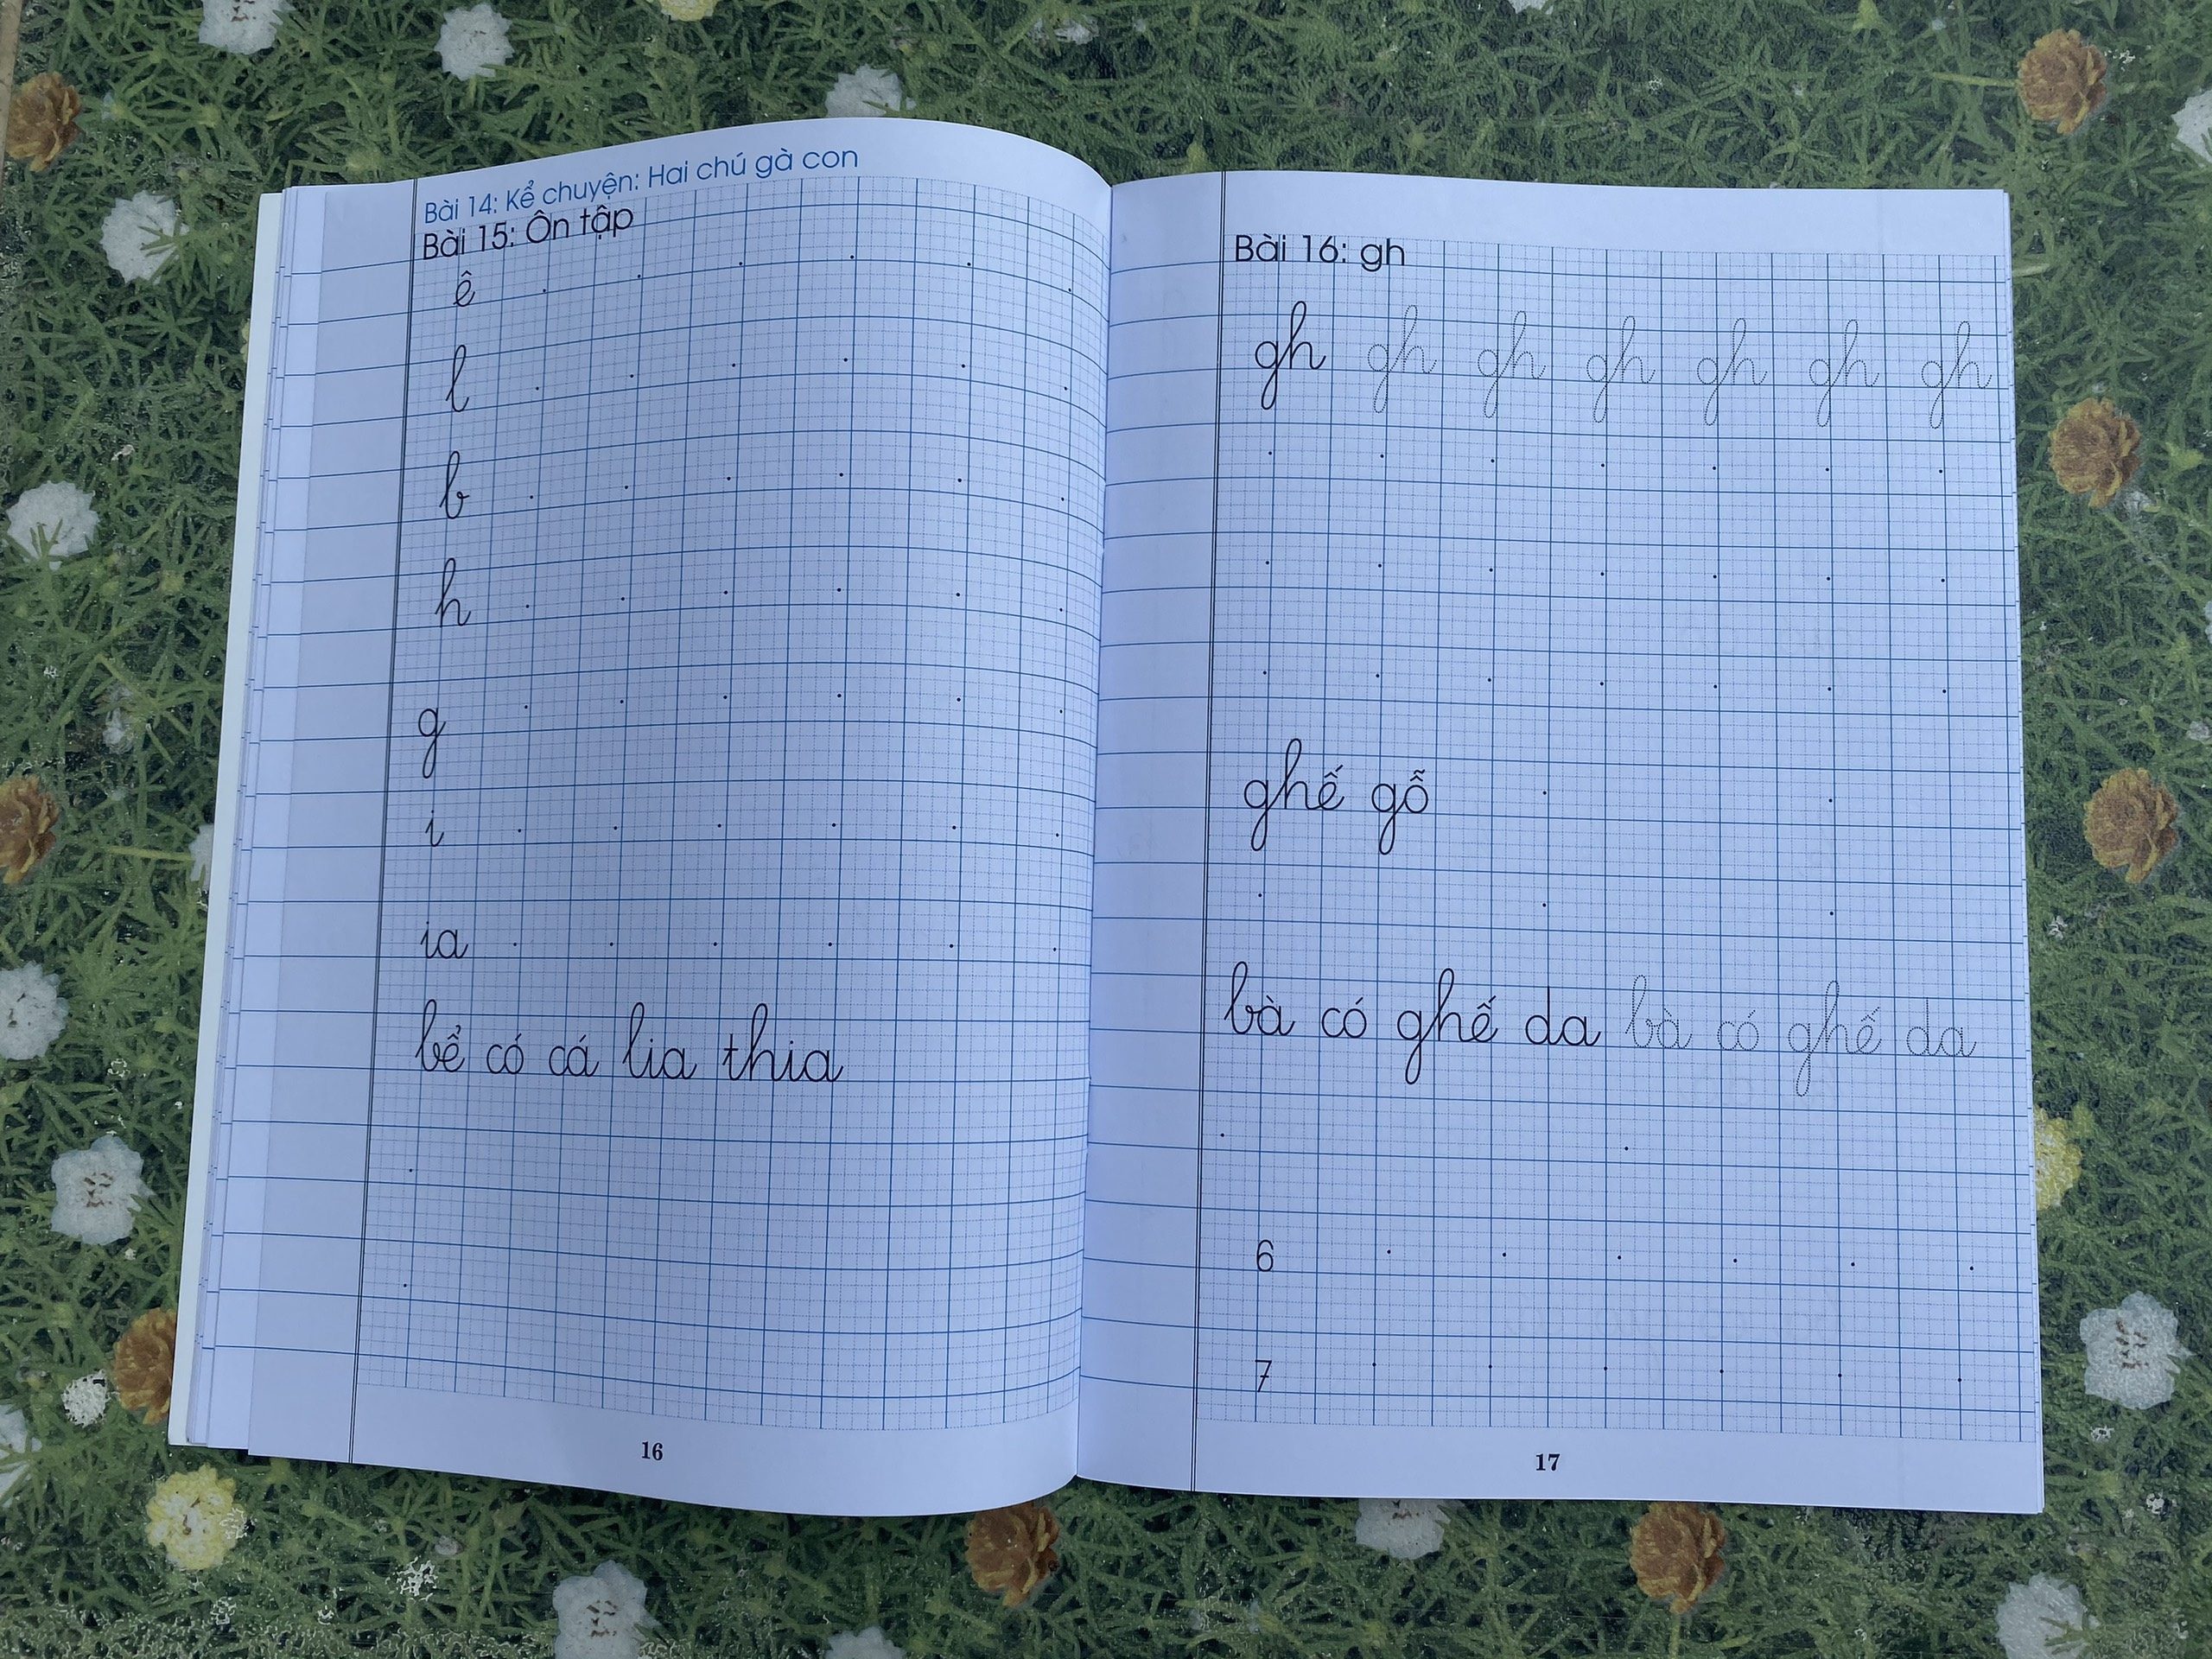 Bài 14: Kể chuyện: Hai chú gà con
Bài 15: Ôn tập
ê
l
b
h
g
i
ia
bể có cá lia thia
16
Bài 16: gh
gh gh gh gh gh gh gh
ghế gỗ
bà có ghế da bà có ghế da
6
7
17